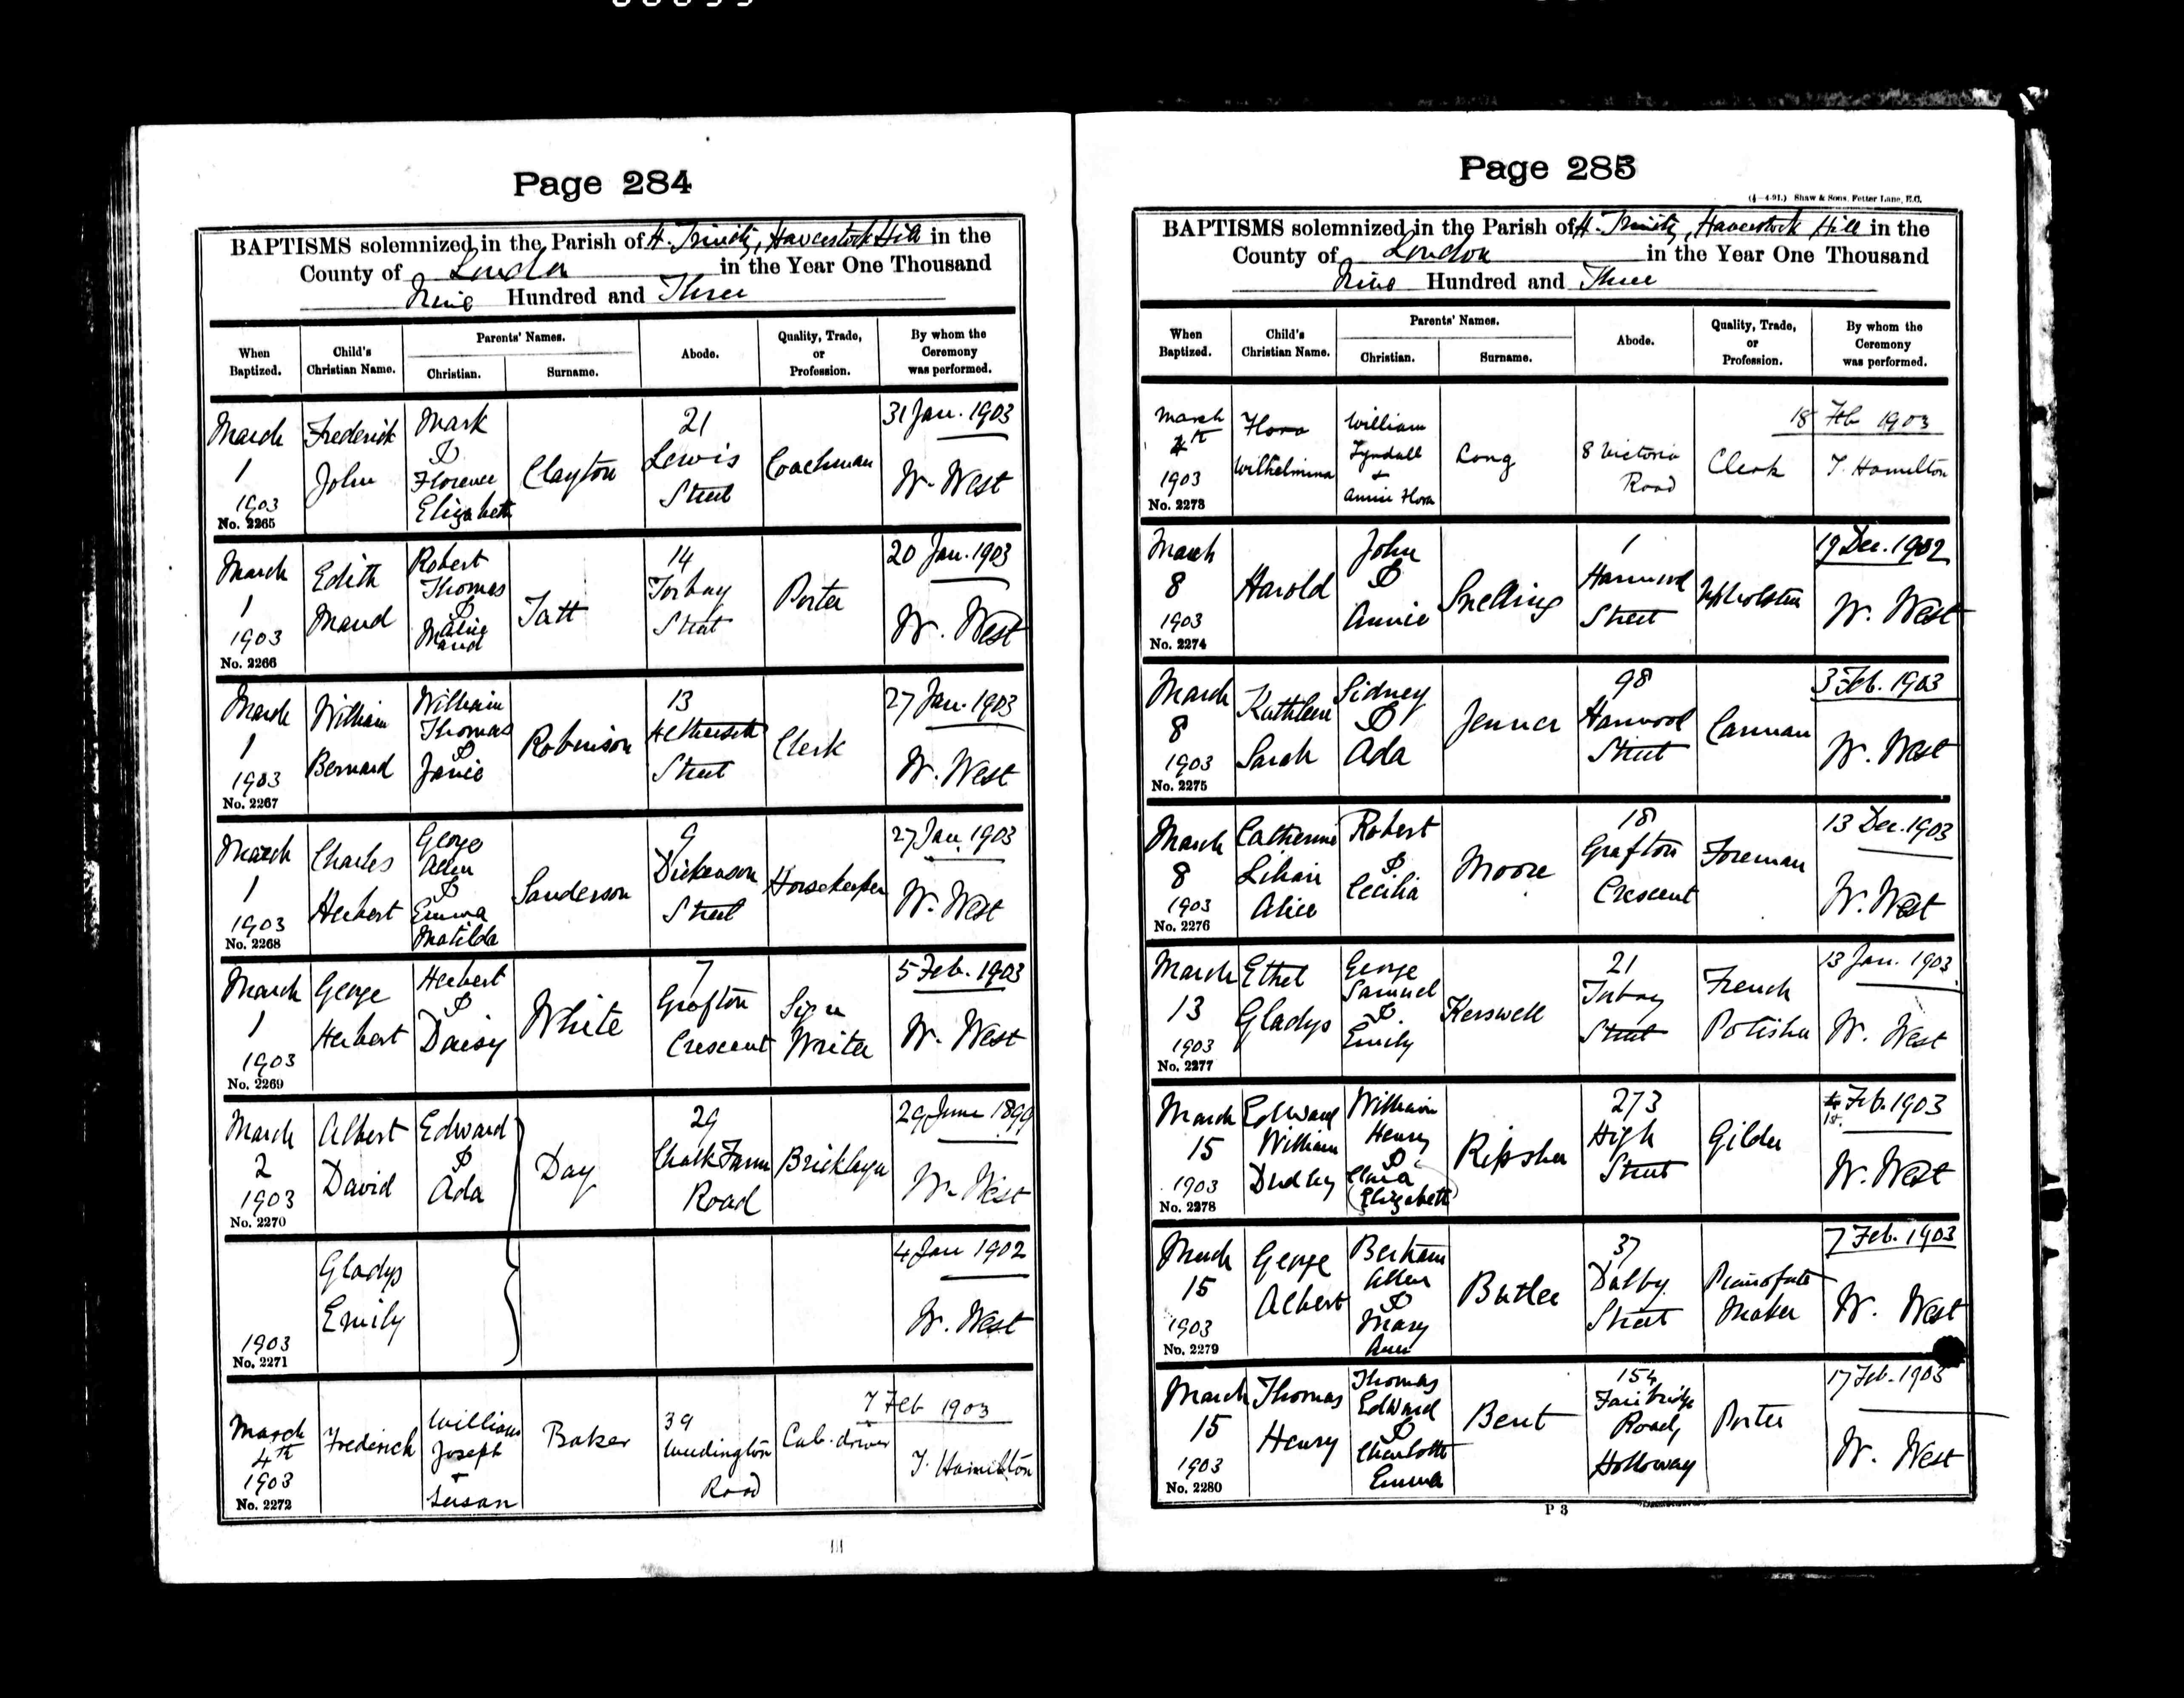 Page 284
BAPTISMS solemnized in the Parish of H. Trinity, Haverstock Hill in the
County of London in the Year One Thousand
Nine Hundred and Three
When Baptized.
Child's Christian Name.
Parents' Names.
Christian.
Surname.
Abode.
Quality, Trade, or Profession.
By whom the Ceremony was performed.
March
1
1903
No. 2265
Frederick
John
Mark
&
Florence
Elizabeth
Clayton
21
Lewis
Street
Coachman
31 Jan. 1903
W. West
March
1
1903
No. 2266
Edith
Maud
Robert
Thomas
&
Alice
Maud
Tatt
14
Torbay
Street
Porter
20 Jan. 1903
W. West
March
1
1903
No. 2267
William
Bernard
William
Thomas
&
Janie
Robinson
13
Street
Clerk
27 Jan. 1903
W. West
March
1
1903
No. 2268
Charles
Herbert
George
Allen
&
Emma
Matilda
Sanderson
9
Dickenson
Street
Horsekeeper
27 Jan. 1903
W. West
March
1
1903
No. 2269
George
Herbert
Herbert
&
Daisy
White
7
Grafton
Crescent
Sign
Writer
5 Feb. 1903
W. West
March
2
1903
No. 2270
Albert
David
Edward
&
Ada
Day
29
Chalk Farm
Road
Bricklayer
29 June 1899
W. West
1903
No. 2271
Gladys
Emily
4 Jan 1902
W. West
March
4th
1903
No. 2272
Frederick
William
Joseph
+
Susan
Baker
39
Road
Cab-driver
7 Feb 1903
T. Hamilton
Page 285
(4—4-91.) Shaw & Sons, Fetter Lane, E.C.
BAPTISMS solemnized in the Parish of H. Trinity, Haverstock Hill in the
County of London in the Year One Thousand
Nine Hundred and Three
When Baptized.
Child's Christian Name.
Parents' Names.
Christian.
Surname.
Abode.
Quality, Trade, or Profession.
By whom the Ceremony was performed.
March
4th
1903
No. 2273
Flora
Wilhelmina
William
Tyndall
+
Annie Flora
Long
8 Victoria
Road
Clerk
18 Feb 1903
T. Hamilton
March
8
1903
No. 2274
Harold
John
&
Annie
Snelling
1
Harwood
Street
Upholster
19 Dec. 1902
W. West
March
8
1903
No. 2275
Kathleen
Sarah
Sidney
&
Ada
Jenner
98
Harwood
Street
Carman
3 Feb. 1903
W. West
March
8
1903
No. 2276
Catherine
Lilian
Alice
Robert
&
Cecilia
Moore
18
Grafton
Crescent
Foreman
13 Dec. 1903
W. West
March
13
1903
No. 2277
Ethel
Gladys
George
Samuel
&
Emily
Kerswell
21
Torbay
Street
French
Polisher
13 Jan. 1903
W. West
March
15
1903
No. 2278
Edward
William
Dudley
William
Henry
&
Clara
(Elizabeth)
Ripsher
273
High
Street
Gilder
Feb. 1903
W. West
March
15
1903
No. 2279
George
Albert
Bertram
Allen
&
Mary
Ann
Butler
37
Dalby
Street
Pianoforte
Maker
7 Feb. 1903
W. West
March
15
1903
No. 2280
Thomas
Henry
Thomas
Edward
&
Charlotte
Emma
Bent
154
Fairbridge
Road,
Holloway
Porter
17 Feb. 1903
W. West
P 3